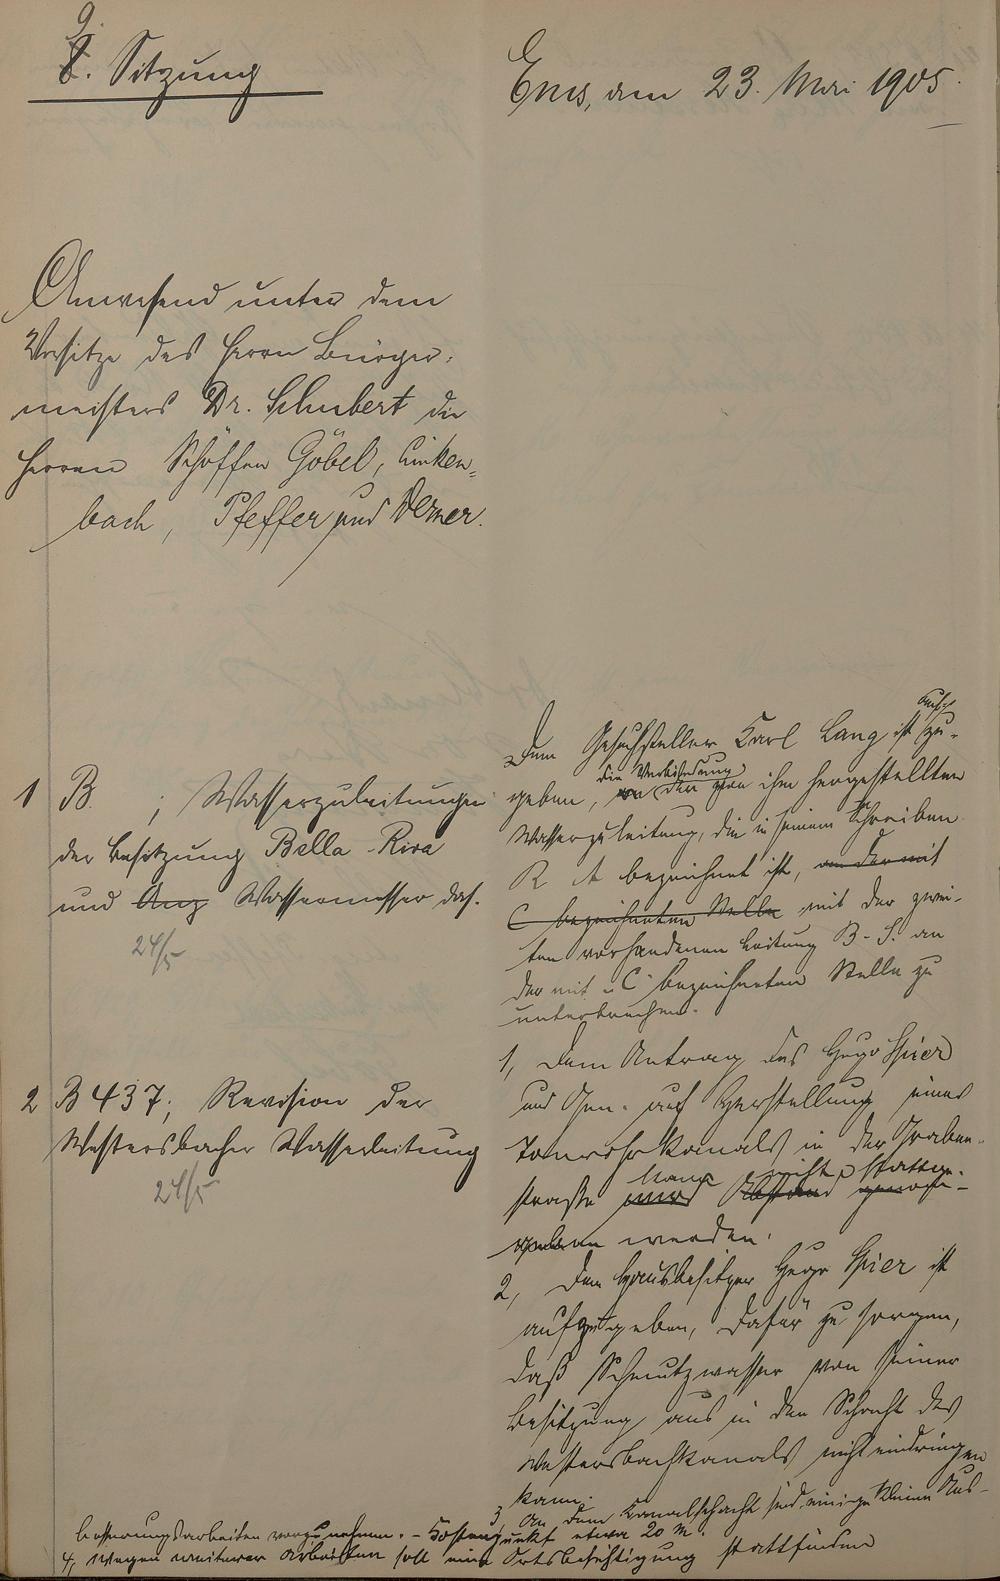 9.
8. Sitzung
Ems, den 23. Mai 1905.
Anwesend unter dem
Vorsitze des Herrn Bürger-
meisters Dr. Schubert die
Herren Schöffen Göbel, Linken-
bach, Pfeffer und Dermer.
1 B. ; Wasserzuleitungen
der Besitzung Bella-Riva
und Anz Wassermesser das.
24/5
Dem Gesuchsteller Karl Lang ist aufzu-
geben, die Verbindung der von ihm hergestellten
Wasserzuleitung, die in seinem Schreiben
R A bezeichnet ist, an der mit
C bezeichneten Stelle mit der zwei-
ten vorhandenen Leitung B-S. an
der mit "C" bezeichneten Stelle zu
unterbrechen.
2 B 437; Revision der
Westersbacher Wasserleitung
24/5
1, Dem Antrag des Hugo Spier
und Gen. auf Herstellung eines
Tonrohrkanals in der Graben-
straße kann nicht stattge-
geben werden.
2, Dem Hausbesitzer Hugo Spier ist
aufzugeben, dafür zu sorgen,
daß Schmutzwasser von seiner
Besitzung aus in den Schacht des
Westersbachkanals nicht eindringen
kann.
3, An dem Kanalschacht sind einige kleine Aus-
besserungsarbeiten vorzunehmen. - Kostenpunkt etwa 20 M.
4, Wegen weiterer Arbeiten soll eine Ortsbesichtigung stattfinden